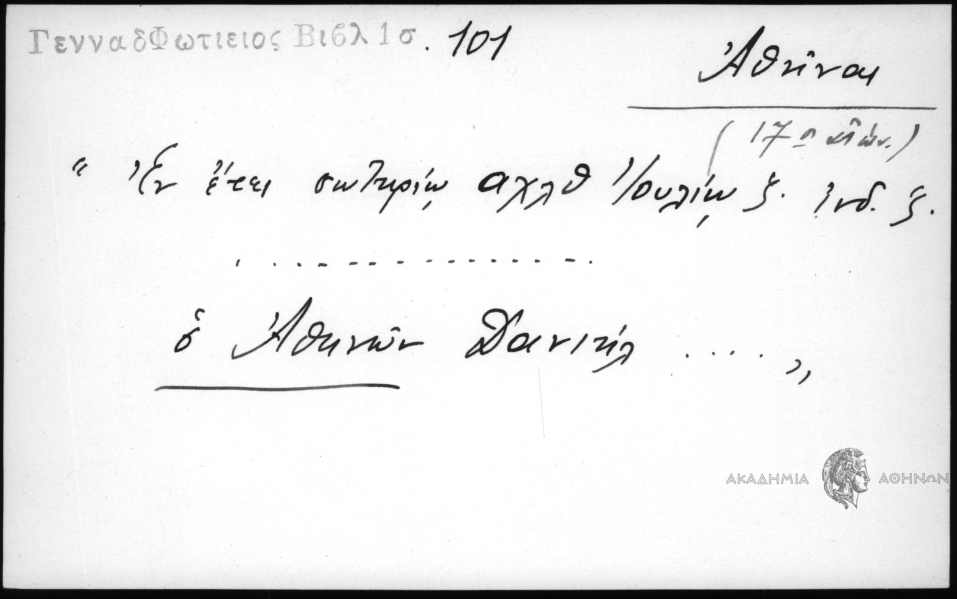 ΓενναδΦωτιειος Βιβλ 1 σ. 101
Ἀθῆναι
(17ος αἰών.)
“ Ἐν ἔτει σωτηρίῳ αχλθ Ἰουλίῳ ξ. Ἰνδ. ξ.
. . . . . . . . . . . . . . .
ὁ Ἀθηνῶν Δανιήλ .... „
ΑΚΑΔΗΜΙΑ ΑΘΗΝΩΝ